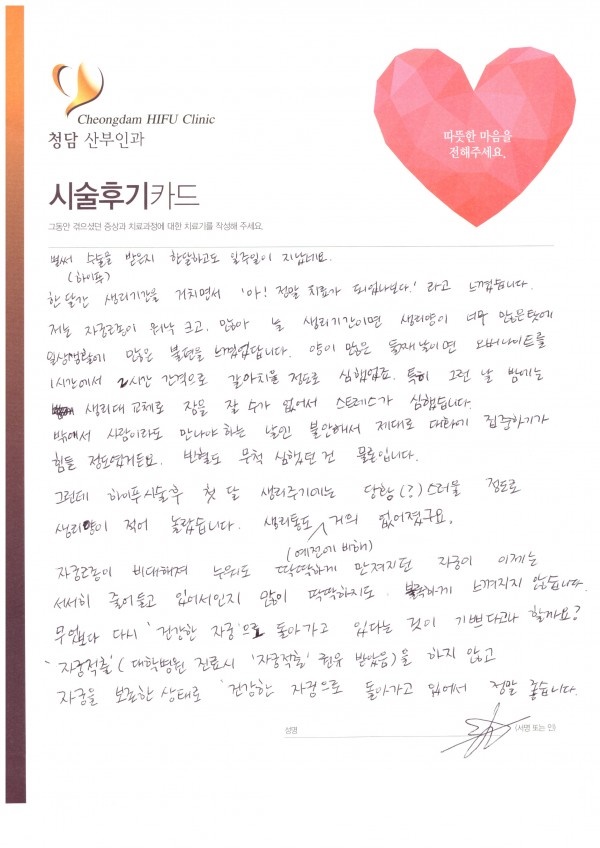 Cheongdam HIFU Clinic
청담 산부인과
따뜻한 마음을
전해주세요.
시술후기카드
그동안 겪으셨던 증상과 치료과정에 대한 치료기를 작성해 주세요.
벌써 수술을 받은지 한달하고도 일주일이 지났네요.
(하이푸)
한달간 생리기간을 거치면서 '아! 정말 치료가 되었나보다.' 라고 느꼈습니다.
저는 자궁근종이 워낙 크고, 많아 늘 생리기간이면 생리양이 너무 많은탓에
일상생활에 많은 불편을 느꼈었답니다. 양이 많은 둘째날이면 오버나이트를
1시간에서 2시간 간격으로 갈아치울 정도로 심했었죠. 특히 그런 날 밤에는
생리대 교체로 잠을 잘 수가 없어서 스트레스가 심했습니다.
밖에서 사람이라도 만나야 하는 날엔 불안해서 제대로 대화에 집중하기가
힘들 정도였거든요. 빈혈도 무척 심했던 건 물론입니다.
그런데 하이푸시술후 첫 달 생리주기에는 당황(?)스러울 정도로
생리양이 적어 놀랐습니다. 생리통도 거의 없어졌구요.
(예전에 비해)
자궁근종이 비대해져 누워도 딱딱하게 만져지던 자궁이 이제는
서서히 줄어들고 있어서인지 많이 딱딱하지도 불룩하게 느껴지지 않습니다.
무엇보다 다시 '건강한 자궁'으로 돌아가고 있다는 것이 기쁘다고나 할까요?
'자궁적출' (대학병원 진료시 '자궁적출' 권유 받았음)을 하지 않고
자궁을 보존한 상태로 '건강한 자궁으로 돌아가고 있어서 정말 좋습니다.
성명 (서명 또는 인)